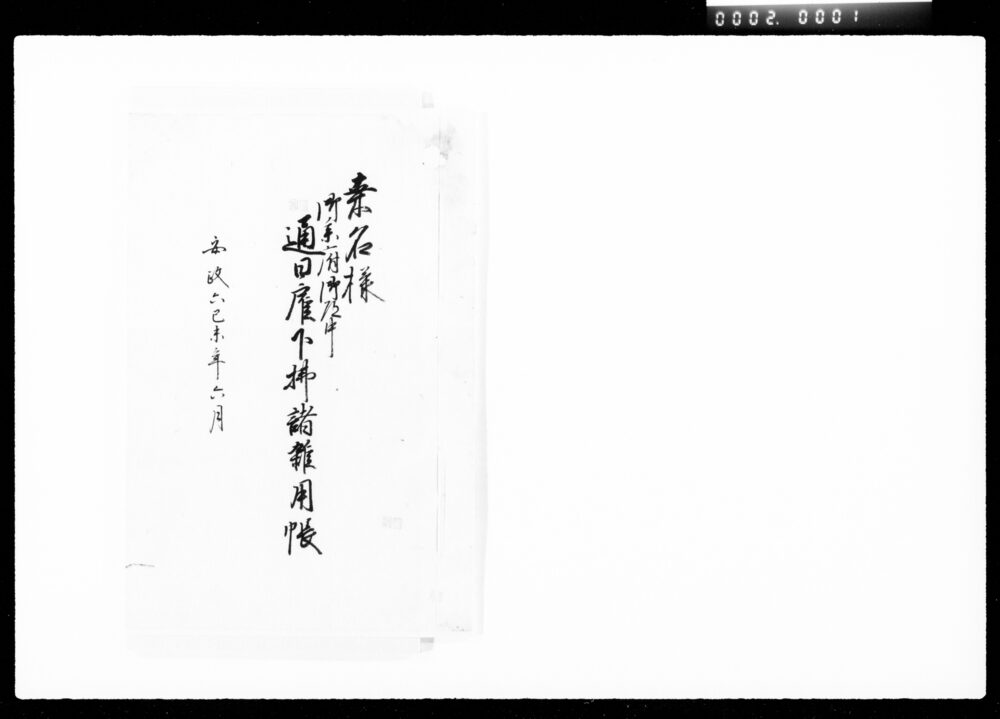 0002. 0001
桑名様
御参府御登中
通日雇下拂諸雑用帳
安政六己未年六月